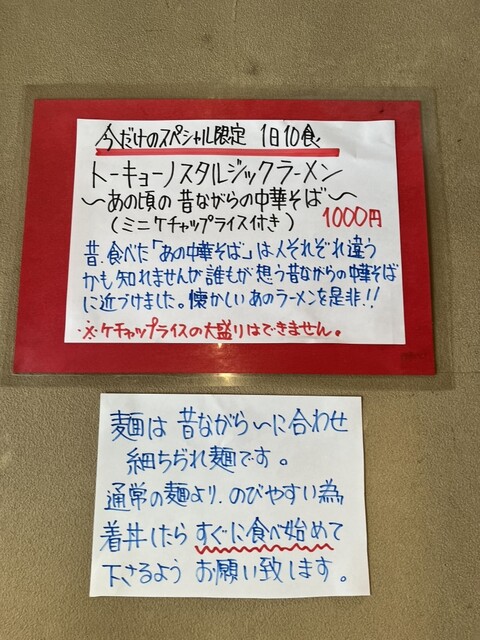 今だけのスペシャル限定 1日10食
トーキョーノスタルジックラーメン
〜あの頃の昔ながらの中華そば〜
(ミニケチャップライス付き) 1000円
昔、食べた「あの中華そば」は人それぞれ違う
かも知れませんが誰もが想う昔ながらの中華そば
に近づけました。懐かしいあのラーメンを是非!!
※ケチャップライスの大盛りはできません。
麺は昔ながらいに合わせ
細ちぢれ麺です。
通常の麺より、のびやすい為
着丼したらすぐに食べ始めて
下さるよう お願い致します。